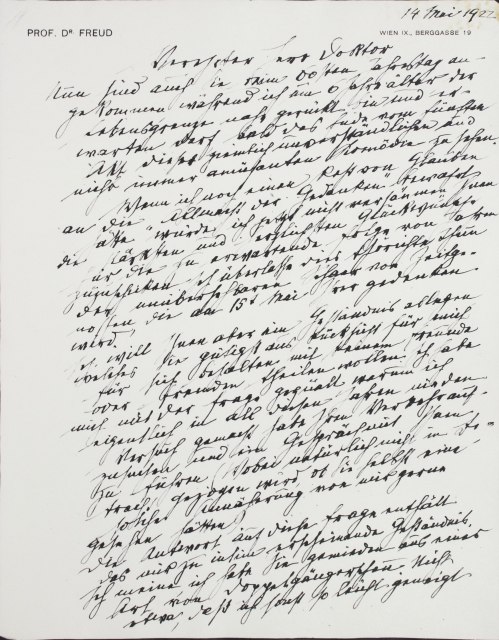 14 Mai 1922
PROF. Dr FREUD
WIEN IX., BERGGASSE 19
Verehrter Herr Doktor
Nun sind auch Sie beim 60sten Jahrestag an-
gekommen während ich um 6 Jahre älter der
Lebensgrenze nahe gerückt bin und er-
warten darf bald das Ende vom fünften
Akt dieser ziemlich unverständlichen und
nicht immer amüsanten Komödie zu sehen.
Wenn ich noch einen Rest von Glauben
an die "Allmacht der Gedanken" bewahrt
hätte würde ich jetzt nicht versäumen Ihnen
die stärksten und herzlichsten Glückwünsche
für die zu erwartende Folge von Jahren
zuzuschicken. Ich überlasse dies thörichte Thun
der unübersehbaren Schaar von Zeitge-
nossen die am 15t Mai Ihrer gedenken
wird.
Ich will Ihnen aber ein Geständnis ablegen
welches Sie gütigst aus Rücksicht für mich
für sich behalten und mit keinem Freunde
oder Fremden theilen wollen. Ich habe
mich mit der Frage gequält warum ich
eigentlich in all diesen Jahren nie den
Versuch gemacht habe Ihren Verkehr auf-
zusuchen und ein Gespräch mit Ihnen
zu führen (wobei natürlich nicht in Be-
tracht gezogen wird, ob Sie selbst eine
solche Annäherung von mir gerne
gesehen hätten)
Die Antwort auf diese Frage enthält
das mir zu intim erscheinende Geständnis.
Ich meine ich habe Sie gemieden aus einer
Art von Doppelgängerscheu. Nicht
etwa, daß ich sonst so leicht geneigt